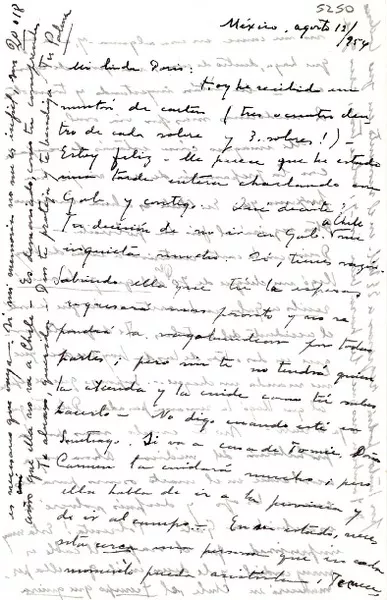 5250
México, agosto 12/
1954
Mi linda Doris:
Hoy he recibido un
montón de cartas (tres o cuatro den
tro de cada sobre y 3 sobres!) -
Estoy feliz - Me parece que he estado
una tarde entera charlando con
Gab. y contigo. Qué decirte?
Tu decisión de no ir con Gab. a Chile me
inquieta mucho. Sí, tienes razón.
Sabiendo ella que tú la esperas
regresará más pronto y no se
pondrá a vagabundear por todas
partes; pero sin ti no tendrá quien
la atienda y la cuide como tú sabes
hacerlo - No digo cuando esté en
Santiago. Si va a casa de Tomic, Doña
Carmen la cuidará mucho; pero
ella habla de ir a la provincia y
de ir al campo - En su estado, nece
sita cerca una persona que en cada
momento pueda asistirla.
es necesario que vaya - Si mi memoria no me es infiel, son 20 o 18
años que ella no va a Chile -
Te abraza, querida - Que te proteja y te bendiga Tu
Palma